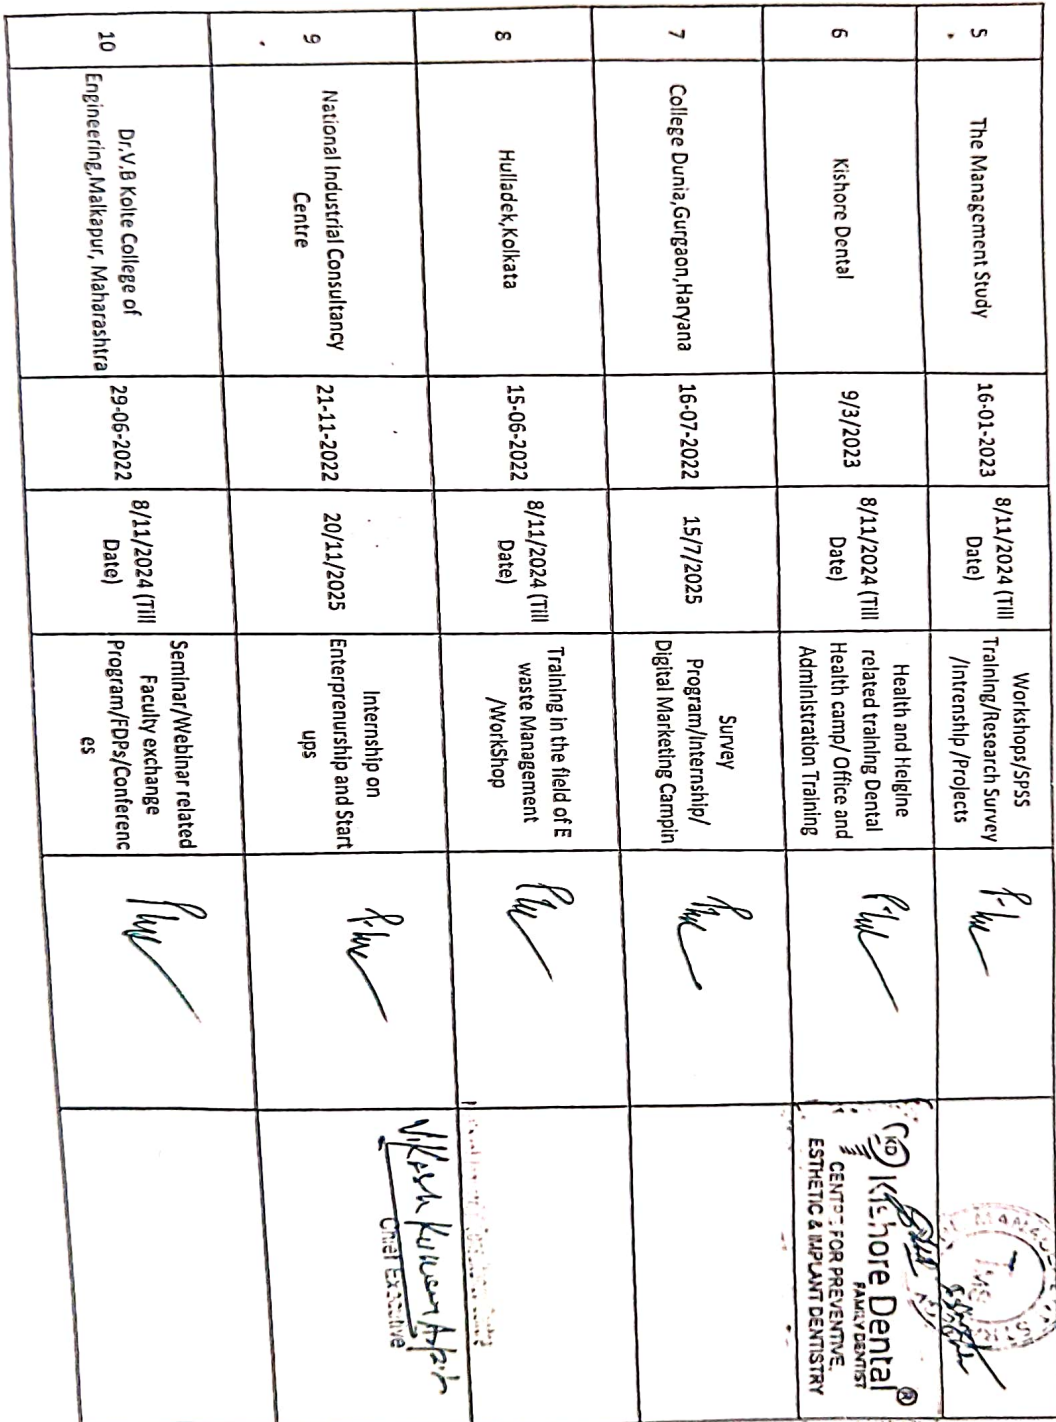 5
The Management Study
16-01-2023
8/11/2024 (Till
Date)
Workshops/SPSS
Training/Research Survey
/Intrenship /Projects
TMS
6
Kishore Dental
9/3/2023
8/11/2024 (Till
Date)
Health and Heigine
related training Dental
Health camp/ Office and
Administration Training
KD Kishore Dental ®
FAMILY DENTIST
CENTRE FOR PREVENTIVE,
ESTHETIC & IMPLANT DENTISTRY
7
College Dunia,Gurgaon,Haryana
16-07-2022
15/7/2025
Survey
Program/Internship/
Digital Marketing Campin
8
Hulladek,Kolkata
15-06-2022
8/11/2024 (Till
Date)
Training in the field of E
waste Management
/WorkShop
9
National Industrial Consultancy
Centre
21-11-2022
20/11/2025
Internship on
Enterprenurship and Start
ups
Vikash Kumar
Chief Executive
10
Dr,V,B Kolte College of
Engineering,Malkapur, Maharashtra
29-06-2022
8/11/2024 (Till
Date)
Seminar/Webinar related
Faculty exchange
Program/FDPs/Conferenc
es